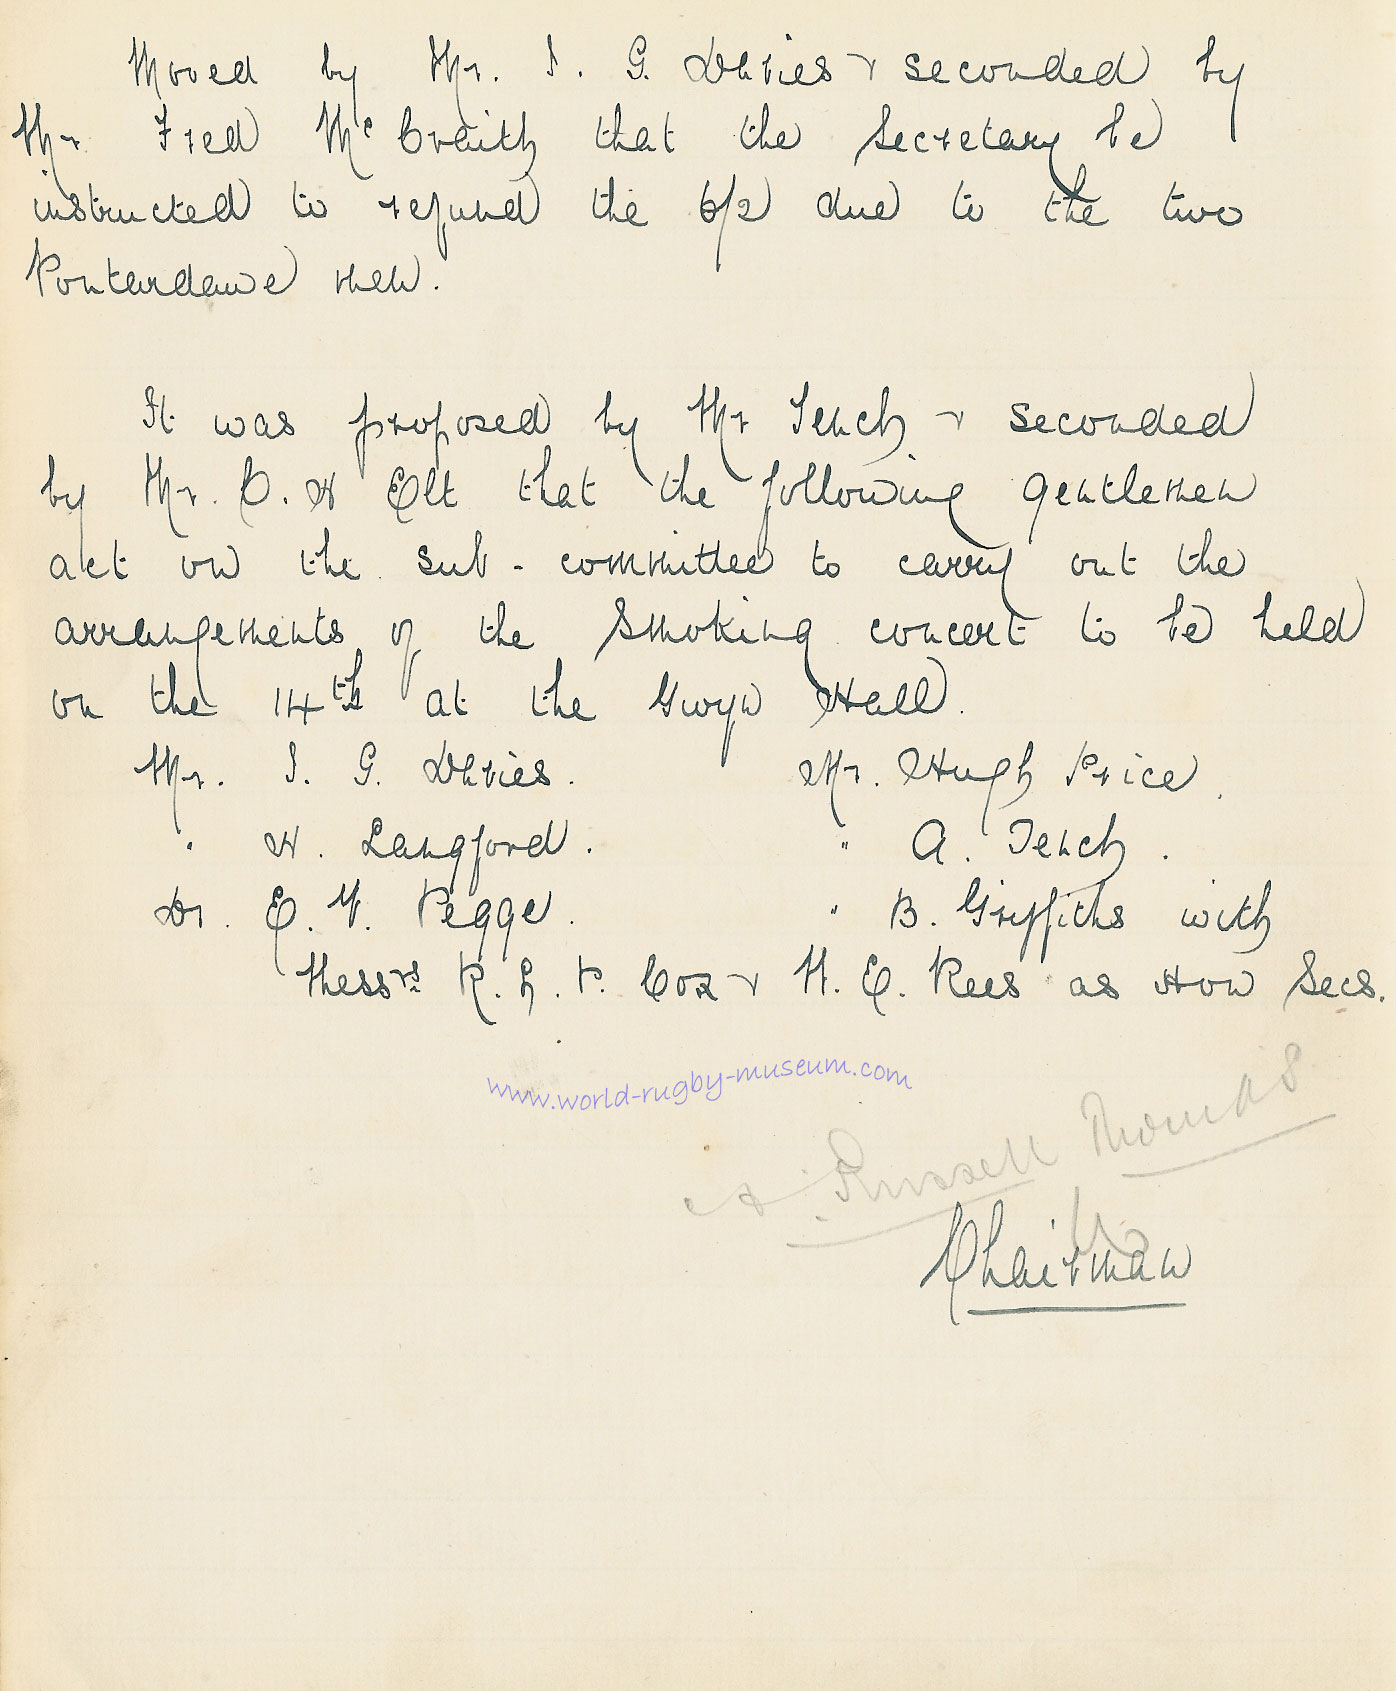 Moved by Mr. I. G. Davies & seconded by
Mr Fred McCraith that the Secretary be
instructed to refund the 6/2 due to the two
Pontardawe men.
It was proposed by Mr Tench & seconded
by Mr. C. H Elt that the following gentlemen
act on the sub-committee to carry out the
arrangements of the Smoking concert to be held
on the 14th at the Gwyn Hall.
Mr. I. G. Davies. Mr. Hugh Price.
" H. Langford. " A. Tench.
Dr. E. V. Pegge. " B. Griffiths with
Messrs. R. L. P. Cox & W. E. Rees as Hon Secs.
www.world-rugby-museum.com
Russell Thomas
Chairman